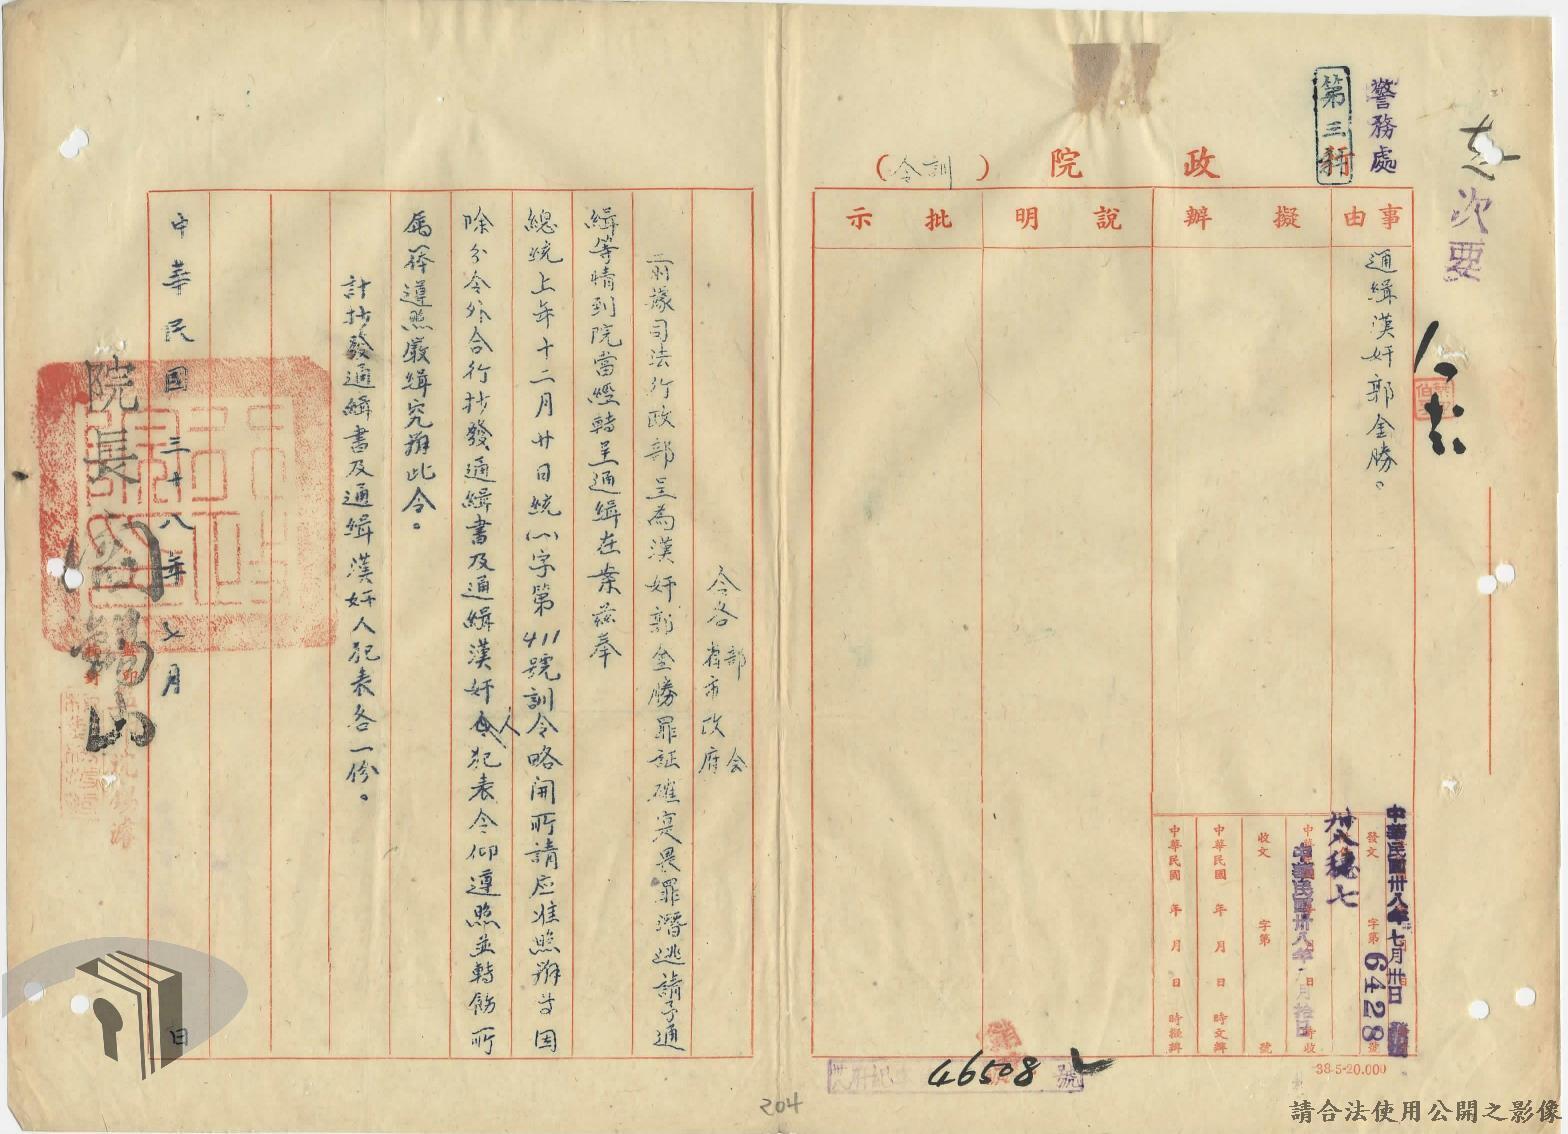 次要
警務處
第三科
行政院（訓令）
事由
擬辦
說明
批示
通緝漢奸郭金勝。
發文 字第6428號
中華民國卅八年七月卅日
卅八穗七
中華民國卅八年 月拾日
收文 字第 號
中華民國 年 月 日 時文辦
中華民國 年 月 日 時擬辦
38-5-20.000
46508 號
令各部會省市政府
前據司法行政部呈為漢奸郭金勝罪証確實畏罪潛逃請予通
緝等情到院當經轉呈通緝在案茲奉
總統上年十二月廿日統(一)字第411號訓令略開所請应准照辦等因
除分令外合行抄發通緝書及通緝漢奸人犯表令仰遵照並轉飭所
屬一体遵照嚴緝究辦此令。
計抄發通緝書及通緝漢奸人犯表各一份。
中華民國三十八年七月 日
院長閻錫山
204
請合法使用公開之影像